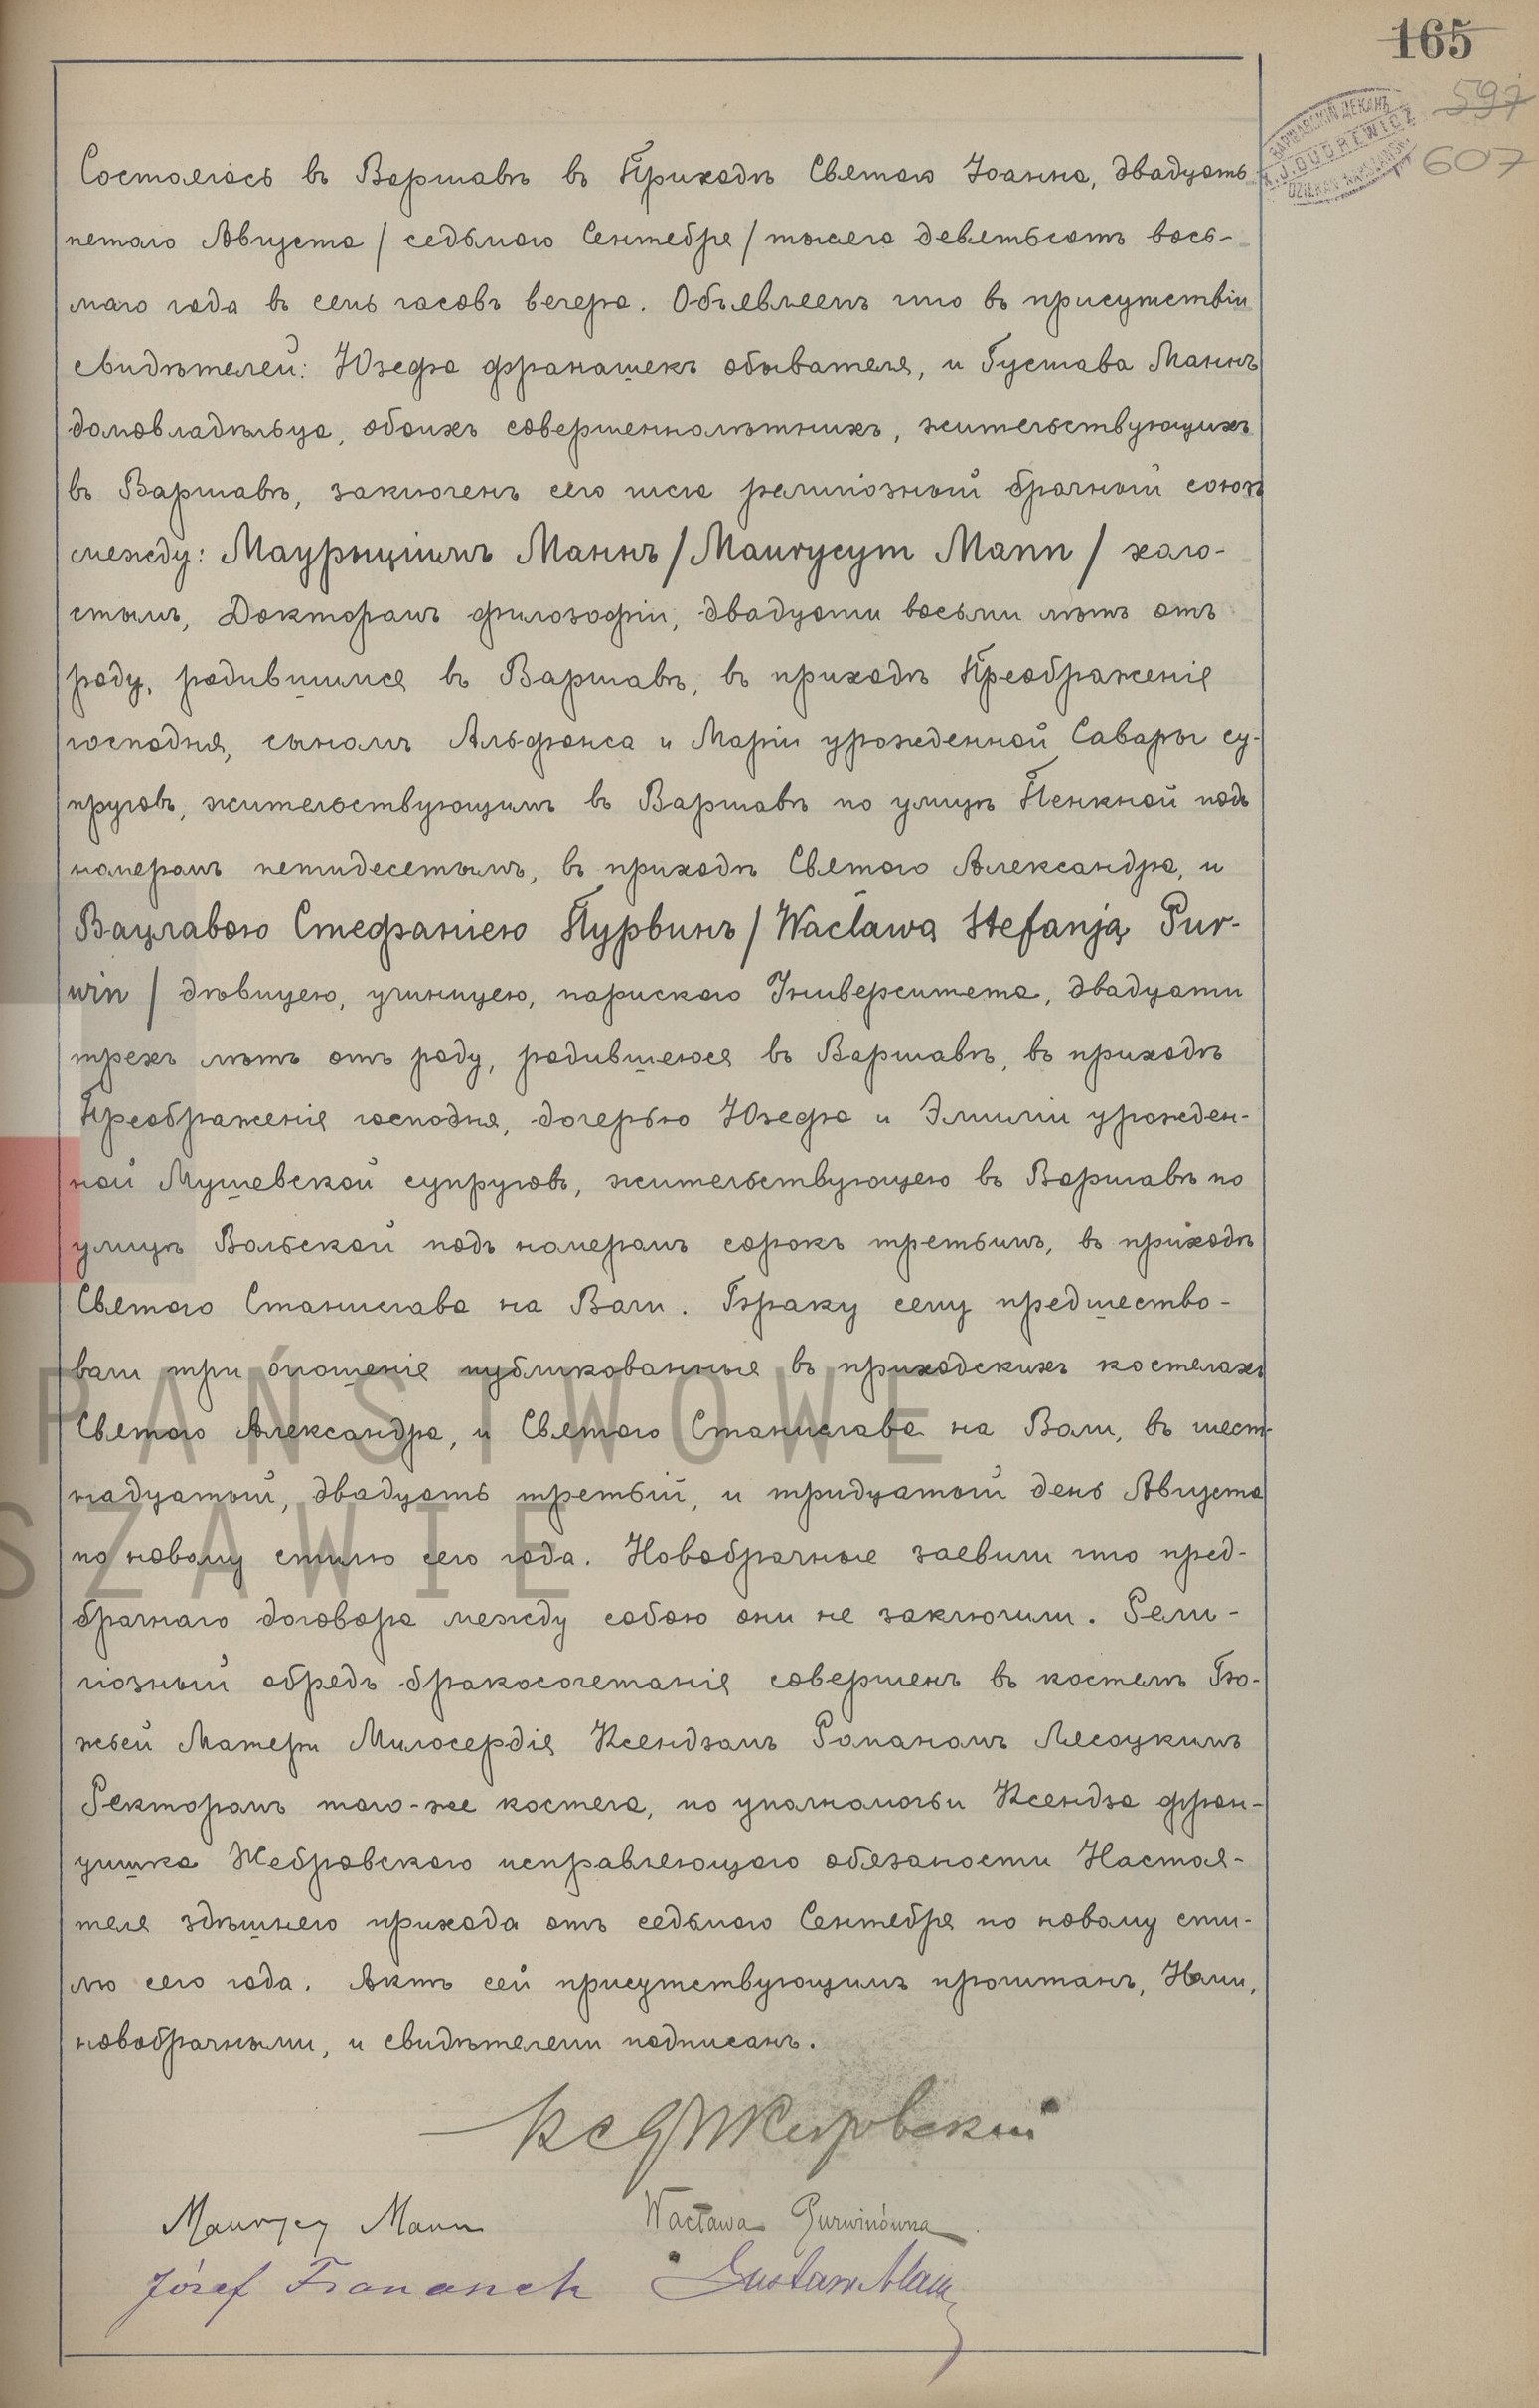 165
ВАРШАВСКІЙ ДЕКАНЪ
597
607
Состоялось въ Варшавѣ въ Приходѣ Святого Іоанна, двадцать
пятаго Августа / седьмого Сентября / тысяча девятьсотъ вось-
маго года въ семь часовъ вечера. Объявляемъ что въ присутствіи
свидѣтелей: Юзефа Франашекъ обывателя, и Густава Маннъ
домовладѣльца, обоихъ совершеннолѣтнихъ, жительствующихъ
въ Варшавѣ, заключенъ сего числа религіозный брачный союзъ
между: Маурыціимъ Маннъ / Maurycym Mann / холо-
стымъ, Докторомъ филозофіи, двадцати восьми лѣтъ отъ
роду, родившимся въ Варшавѣ, въ приходѣ Преображенія
господня, сыномъ Альфонса и Маріи урожденной Савары су-
пруговъ, жительствующимъ въ Варшавѣ по улицѣ Пенкной подъ
номеромъ пятидесятымъ, въ приходѣ Святого Александра, и
Вацлавою Стефаніею Пурвинъ / Wacławą Stefanją Pur-
win / дѣвицею, ученицею, парискаго Университета, двадцати
трехъ лѣтъ отъ роду, родившеюся въ Варшавѣ, въ приходѣ
Преображенія господня, дочерью Юзефа и Эмиліи урожден-
ной Мушевской супруговъ, жительствующею въ Варшавѣ по
улицѣ Вольской подъ номеромъ сорокъ третьимъ, въ приходѣ
Святого Станислава на Воли. Браку сему предшество-
вали три оглошенія публикованныя въ приходскихъ костелахъ
Святого Александра, и Святого Станислава на Воли, въ шест-
надцатый, двадцать третьій, и тридцатый день Августа
по новому стилю сего года. Новобрачные заявили что пред-
брачнаго договора между собою они не заключили. Рели-
гіозный обрядъ бракосочетанія совершенъ въ костелѣ Бо-
жьей Матери Милосердія Ксендзомъ Романомъ Лясоцкимъ
Ректоромъ того-же костела, по уполномочьи Ксендза Фран-
цишка Жебровскаго исправляющаго обязаности Настоя-
теля здѣшнего прихода отъ седьмого Сентября по новому сти-
лю сего года. Актъ сей присутствующимъ прочитанъ, Нами,
новобрачными, и свидѣтелями подписанъ.
Maurycy Mann Wacława Purwinówna
Józef Franaszek Gustaw Mann
PAŃSTWOWE
SZAWIE